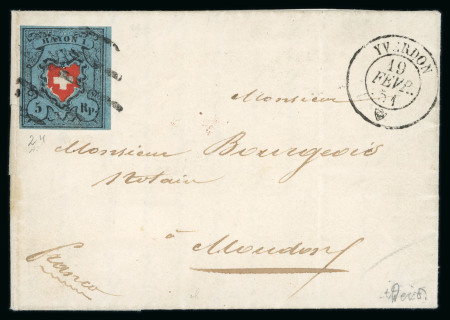 RAYON I
5 Rp.
24
YVERDON
19
FEVR.
51
Monsieur
Monsieur Bourgeois
Notaire
à Moudon
Franco